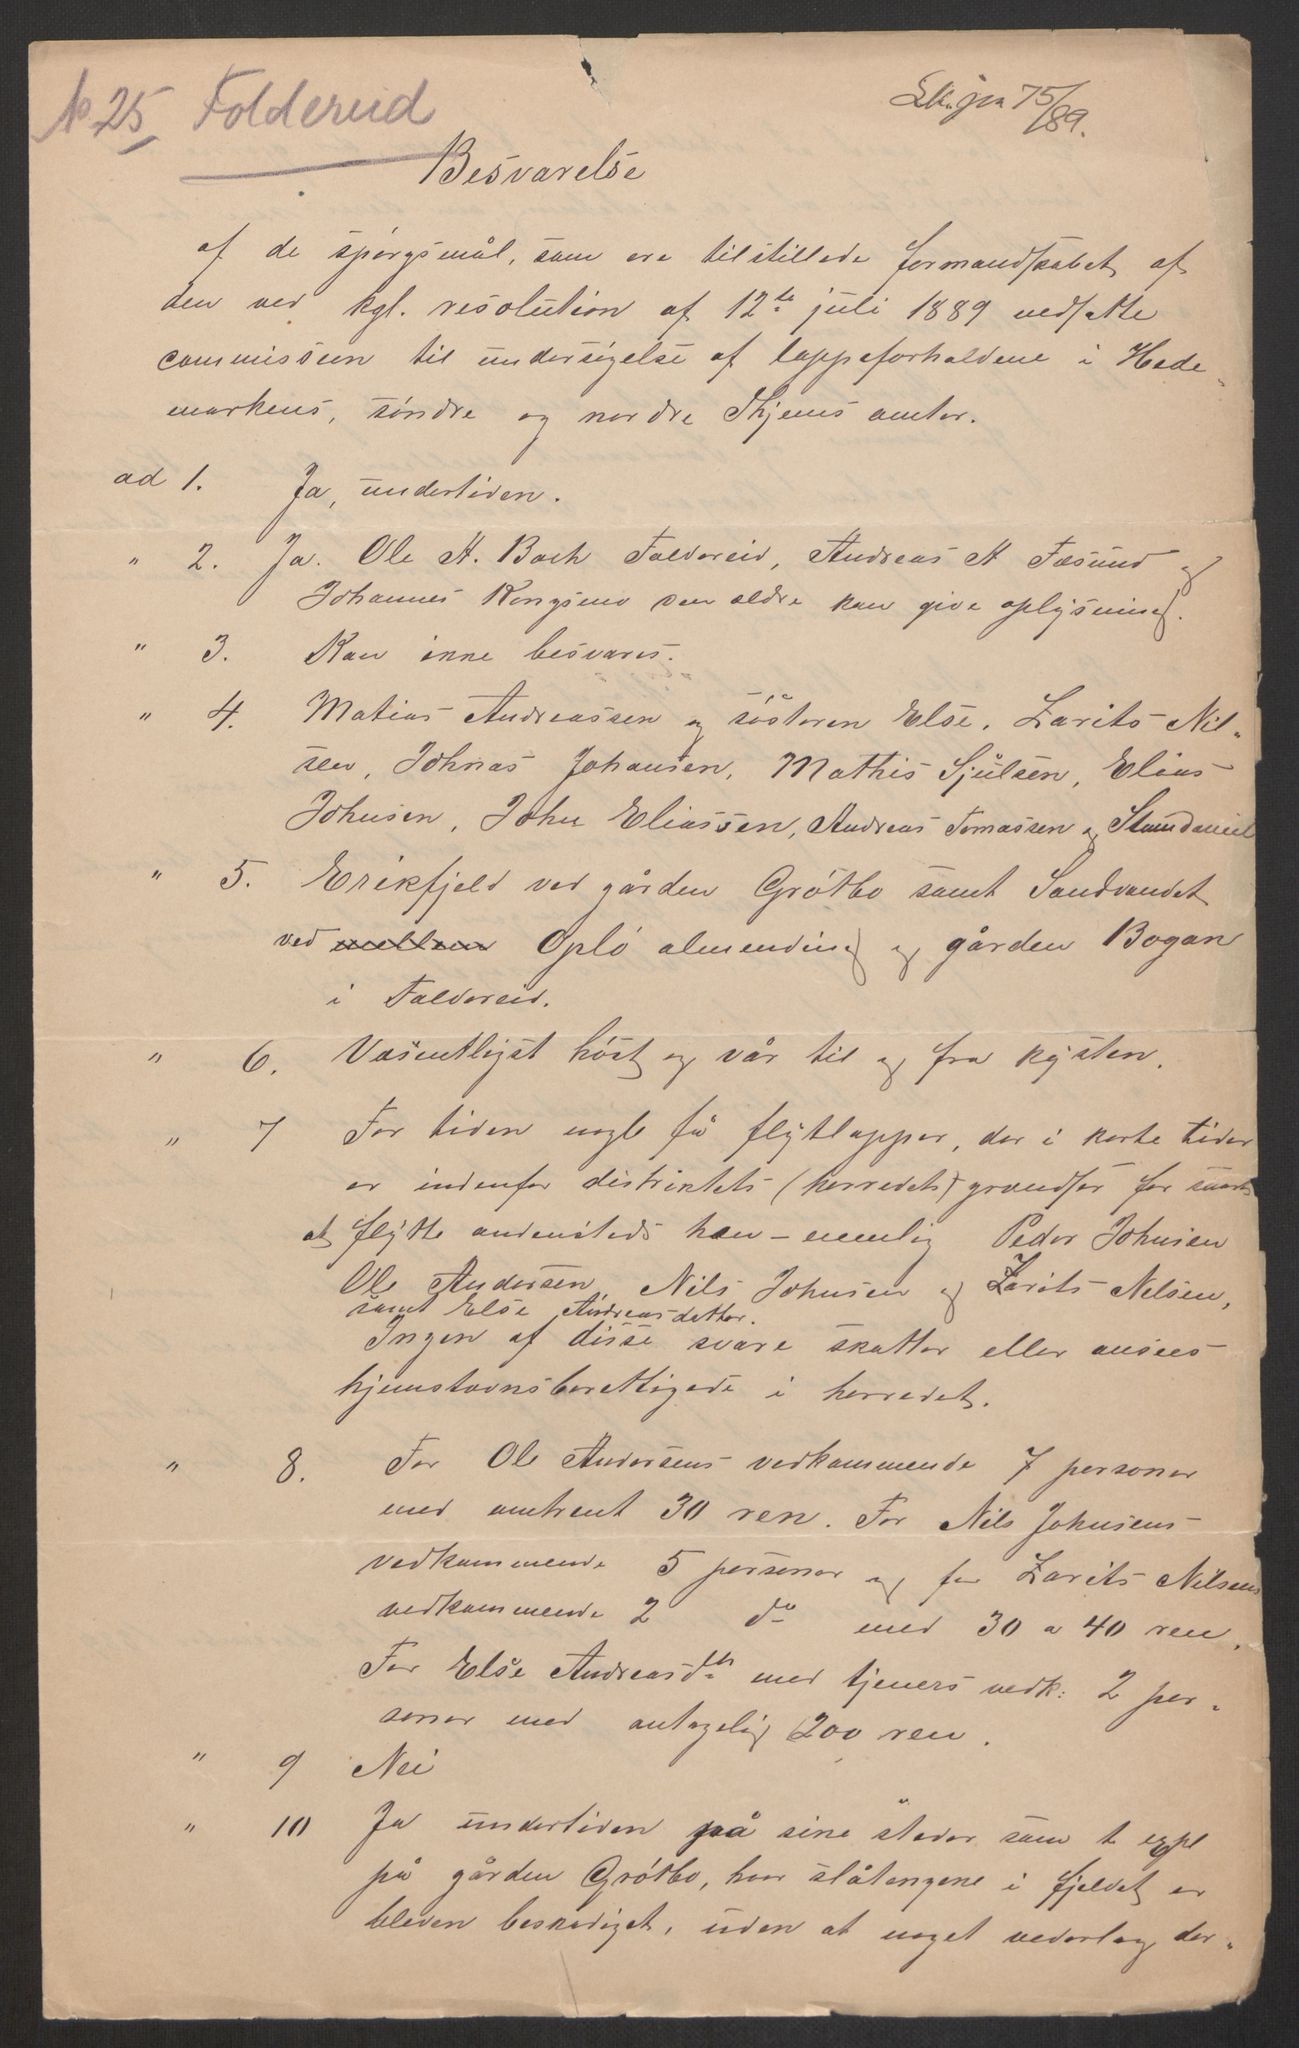 No 25 Foldereid
Lk. jra 75/89.
Besvarelse
af de spörgsmål, som ere tilstillede formandskabet af
den ved kgl. resolution af 12te juli 1889 nedsatte
commission til undersögelse af lappeforholdene i Hede-
markens, söndre og nordre Thjems amter.
ad 1. Ja, undertiden.
" 2. Ja. Ole A. Bach Foldereid, Andreas A Fæsund og
Johannes Kongsmo sen ældre kan give oplysning.
" 3. Kan ikke besvares.
" 4. Matias Andreassen og söstoren Else, Zarits Nil-
sen, Johnas Johansen, Mathis Sjulsen, Elias
Johnsen, John Eliassen, Andreas Tomassen og Stundaniel
" 5. Erikfjeld ved gården Grötbo samt Sandvandet
ved mellem Oplö almending og gården Bogan
i Foldereid.
" 6. Væsentligst höst og vår til og fra kysten.
" 7 For tiden nogle få flytlapper, der i korte tider
er indenfor distriktets (herredets) grændser for snart
at flytte andensteds hen – nemlig Peder Johnsen
Ole Andersen, Nils Johnsen og Zarits Nilsen,
samt Else Andreasdatter.
Ingen af disse svare skatter eller ansees
hjemstavnsberettigede i herredet.
" 8. For Ole Andersens vedkommende 7 personer
med omtrent 30 ren. For Nils Johnsens
vedkommende 5 personer og for Zarits Nilsens
vedkommende 2 do med 30 a 40 ren.
For Else Andreasdtr med tjeners vedk: 2 per-
soner med antagelig 200 ren.
" 9 Nei
" 10 Ja undertiden på sine steder som t expl
på gården Grötbo, hvor slåtengene i fjeldet er
bleven beskadiget, uden at noget vederlag der-